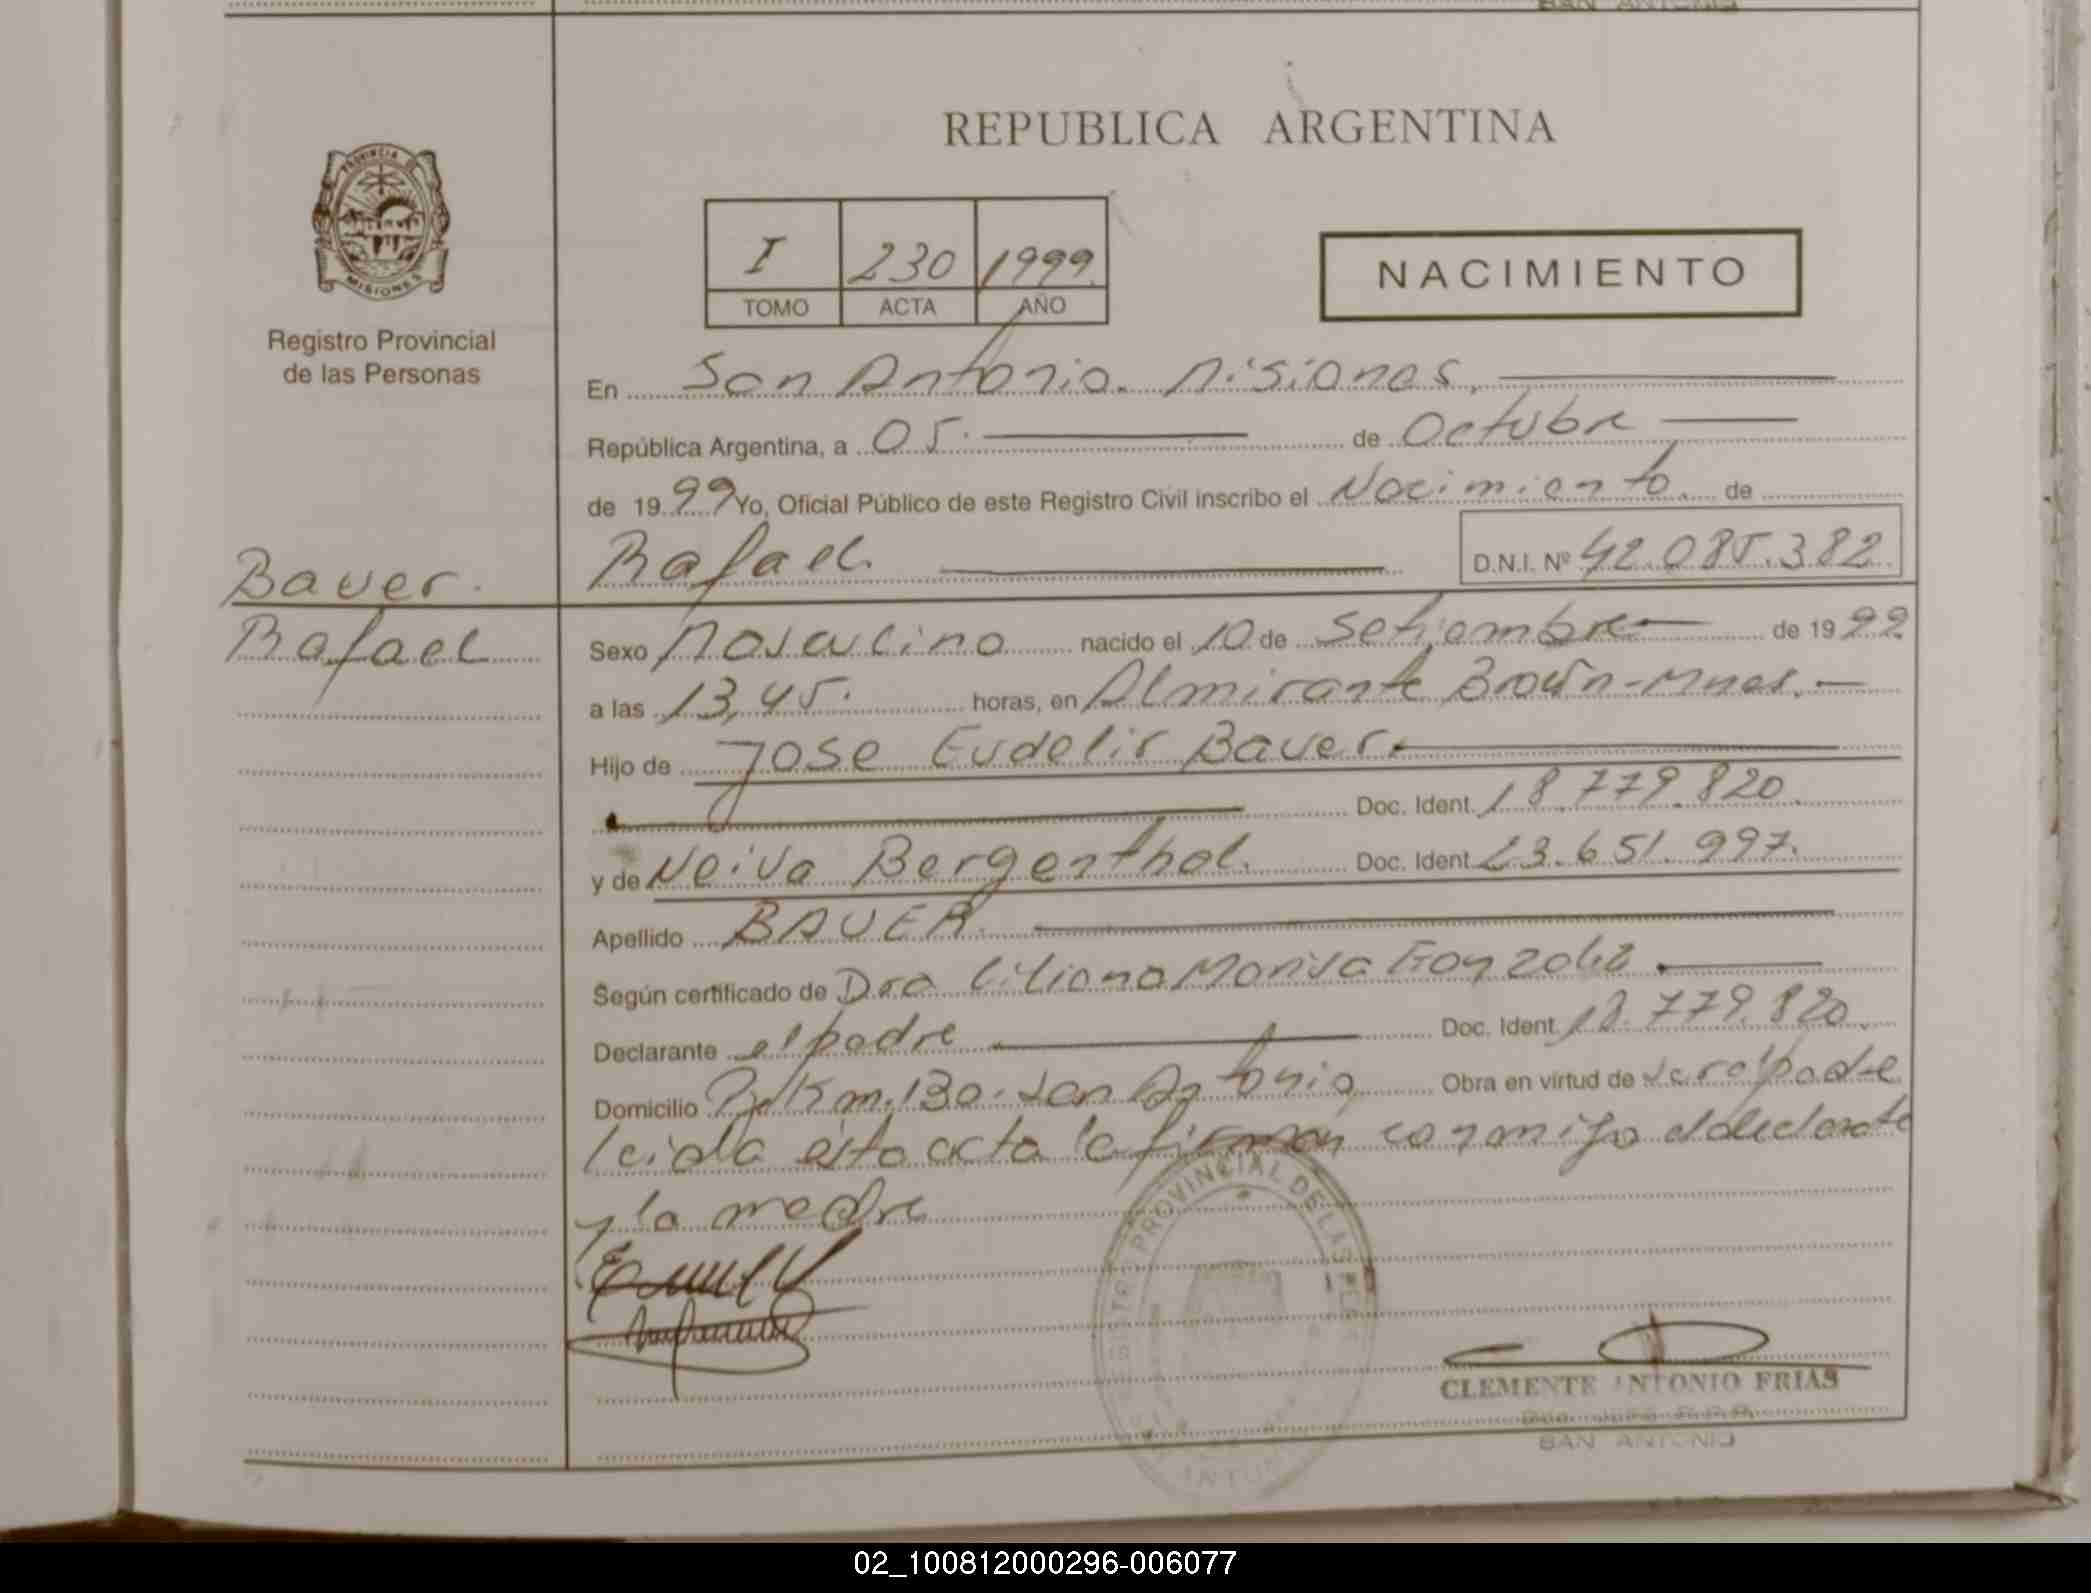 SAN ANTONIO
REPUBLICA ARGENTINA
PROVINCIA DE
MISIONES
Registro Provincial
de las Personas
I 230 1999
TOMO ACTA AÑO
NACIMIENTO
En San Antonio. Misiones,
República Argentina, a 05. de Octubre
de 1999 Yo, Oficial Público de este Registro Civil inscribo el Nacimiento de
Rafael. D.N.I. Nº 42.085.382.
Bauer.
Rafael
Sexo Masculino nacido el 10 de Setiembre de 1999
a las 13,45. horas, en Almirante Brown-Mnes.
Hijo de Jose Eudelir Bauer.
Doc. Ident. 18.779.820.
y de Neiva Bergenthal. Doc. Ident. 23.651.997.
Apellido BAUER.
Según certificado de Dra Liliana Marisa Gonzalez
Declarante el padre Doc. Ident. 18.779.820.
Domicilio Km.130. San Antonio Obra en virtud de ser el padre
leida esta acta la firman conmigo el declarante
y la madre
REGISTRO PROVINCIAL DE LAS PERS
CLEMENTE ANTONIO FRIAS
SAN ANTONIO
02_100812000296-006077